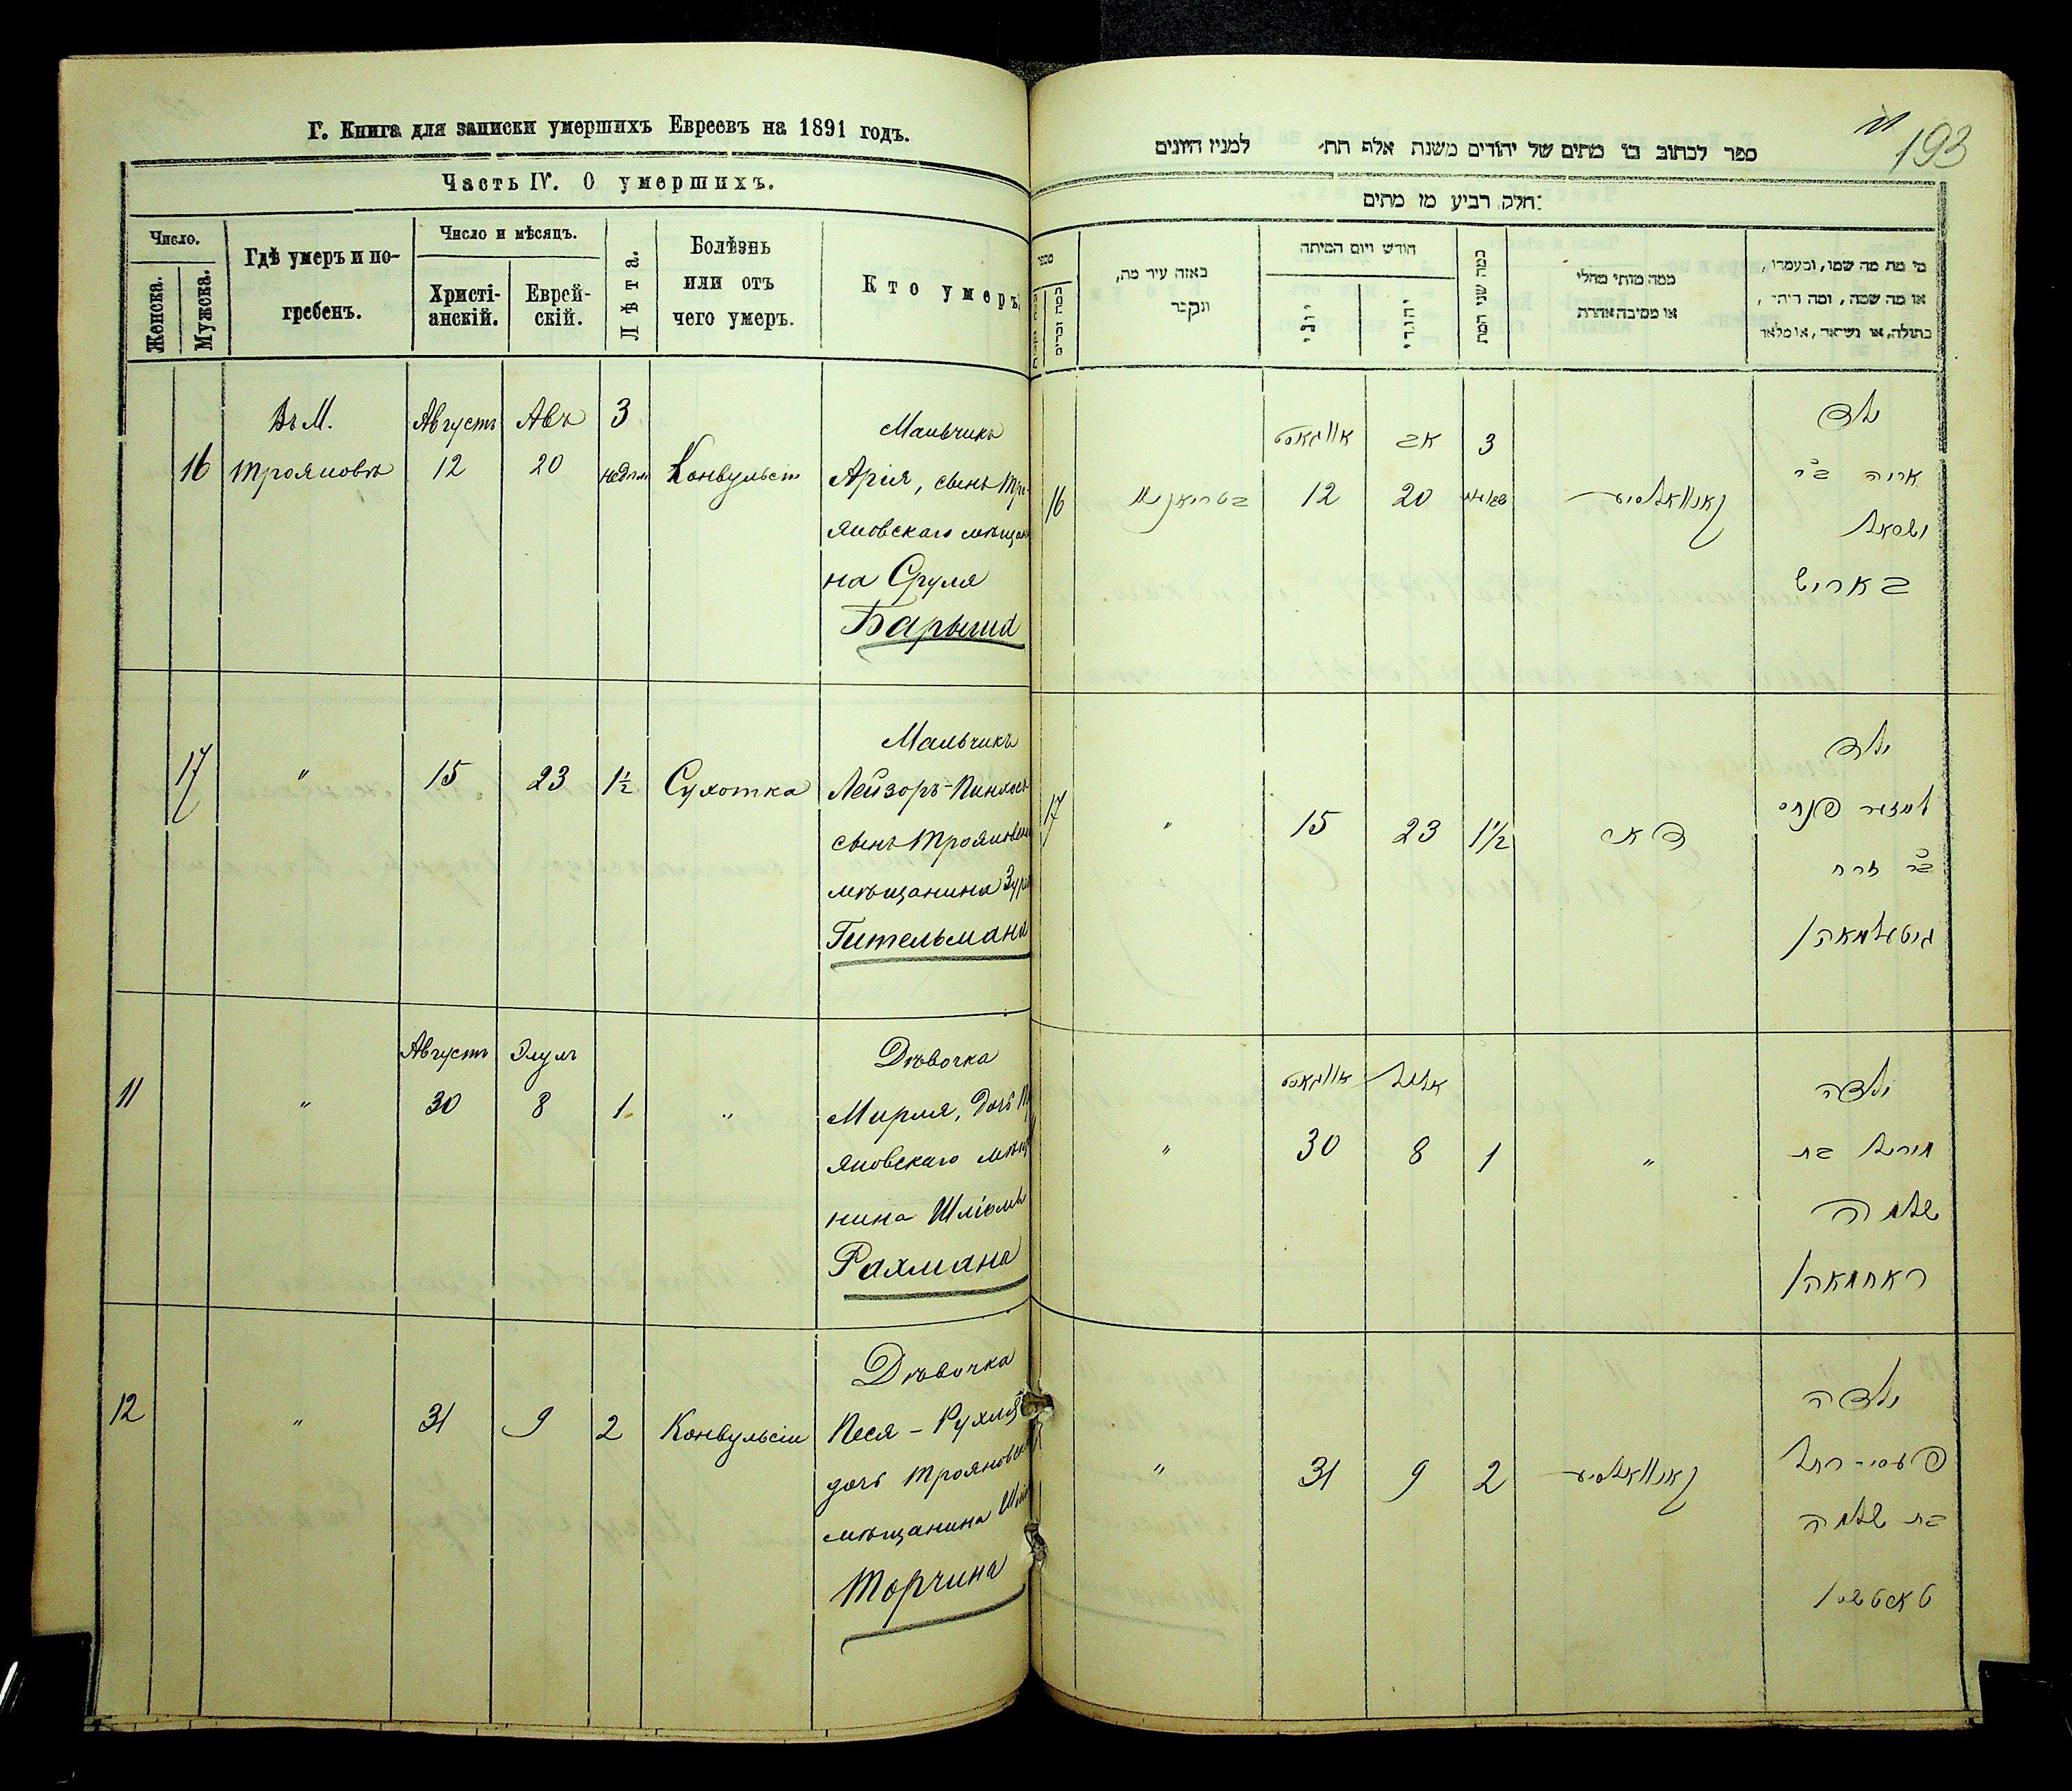 Г. Книга для записки умершихъ Евреевъ на 1891 годъ.
Часть IV. О умершихъ.
Число.
Женска.
Мужска.
Гдѣ умеръ и по-
гребенъ.
Число и мѣсяцъ.
Христі-
анскій.
Еврей-
скій.
Лѣта.
Болѣзнь
или отъ
чего умеръ.
Кто умеръ
16
Въ М.
Трояновѣ
Августъ
12
Авъ
20
3
недѣли
Конвульсіи
Мальчикъ
Арія, сынъ Тро-
яновскаго мѣщани
на Сруля
Барыша
17
"
15
23
1½
Сухотка
Мальчикъ
Лейзоръ-Пинхосъ
сынъ Трояновск
мѣщанина
Гительмана
11
"
Августъ
30
Элулъ
8
1
"
Дѣвочка
Мирля, дочь
яновскаго мѣщ
нина Шліомы
Рахмана
12
"
31
9
2
Конвульсіи
Дѣвочка
Песя-Рухля
дочь Трояновск
мѣщанина
Торчина
193
ספר לכתוב בו מתים של יהודים משנת אלף תת׳ למנין היונים
חלק רביע מן מתים:
מספר
באזה עיר מת,
ונקבר
חודש ויום המיתה
יולי
יהודי
כמה שני המת
ממה מותו מחלי
או מסיבה אחרת
מי מת מה שמו, ומעמדו,
או מה שמה, ומה היתה,
בתולה, או נשואה, או מלאד
16
אווגאסט
12
אב
20
3
קאנוואולסיע
ילד
אריה ב"ר
ישראל
באריש
17
"
15
23
1½
דאר
ילד
לייזער פנחס
ב"ר זרח
גיטעלמאהן
"
אווגאסט
30
אלול
8
1
"
ילדה
מירעל בת
שלמה
ראחמאהן
"
31
9
2
קאנוואולסיע
ילדה
פעסי-רחל
בת שלמה